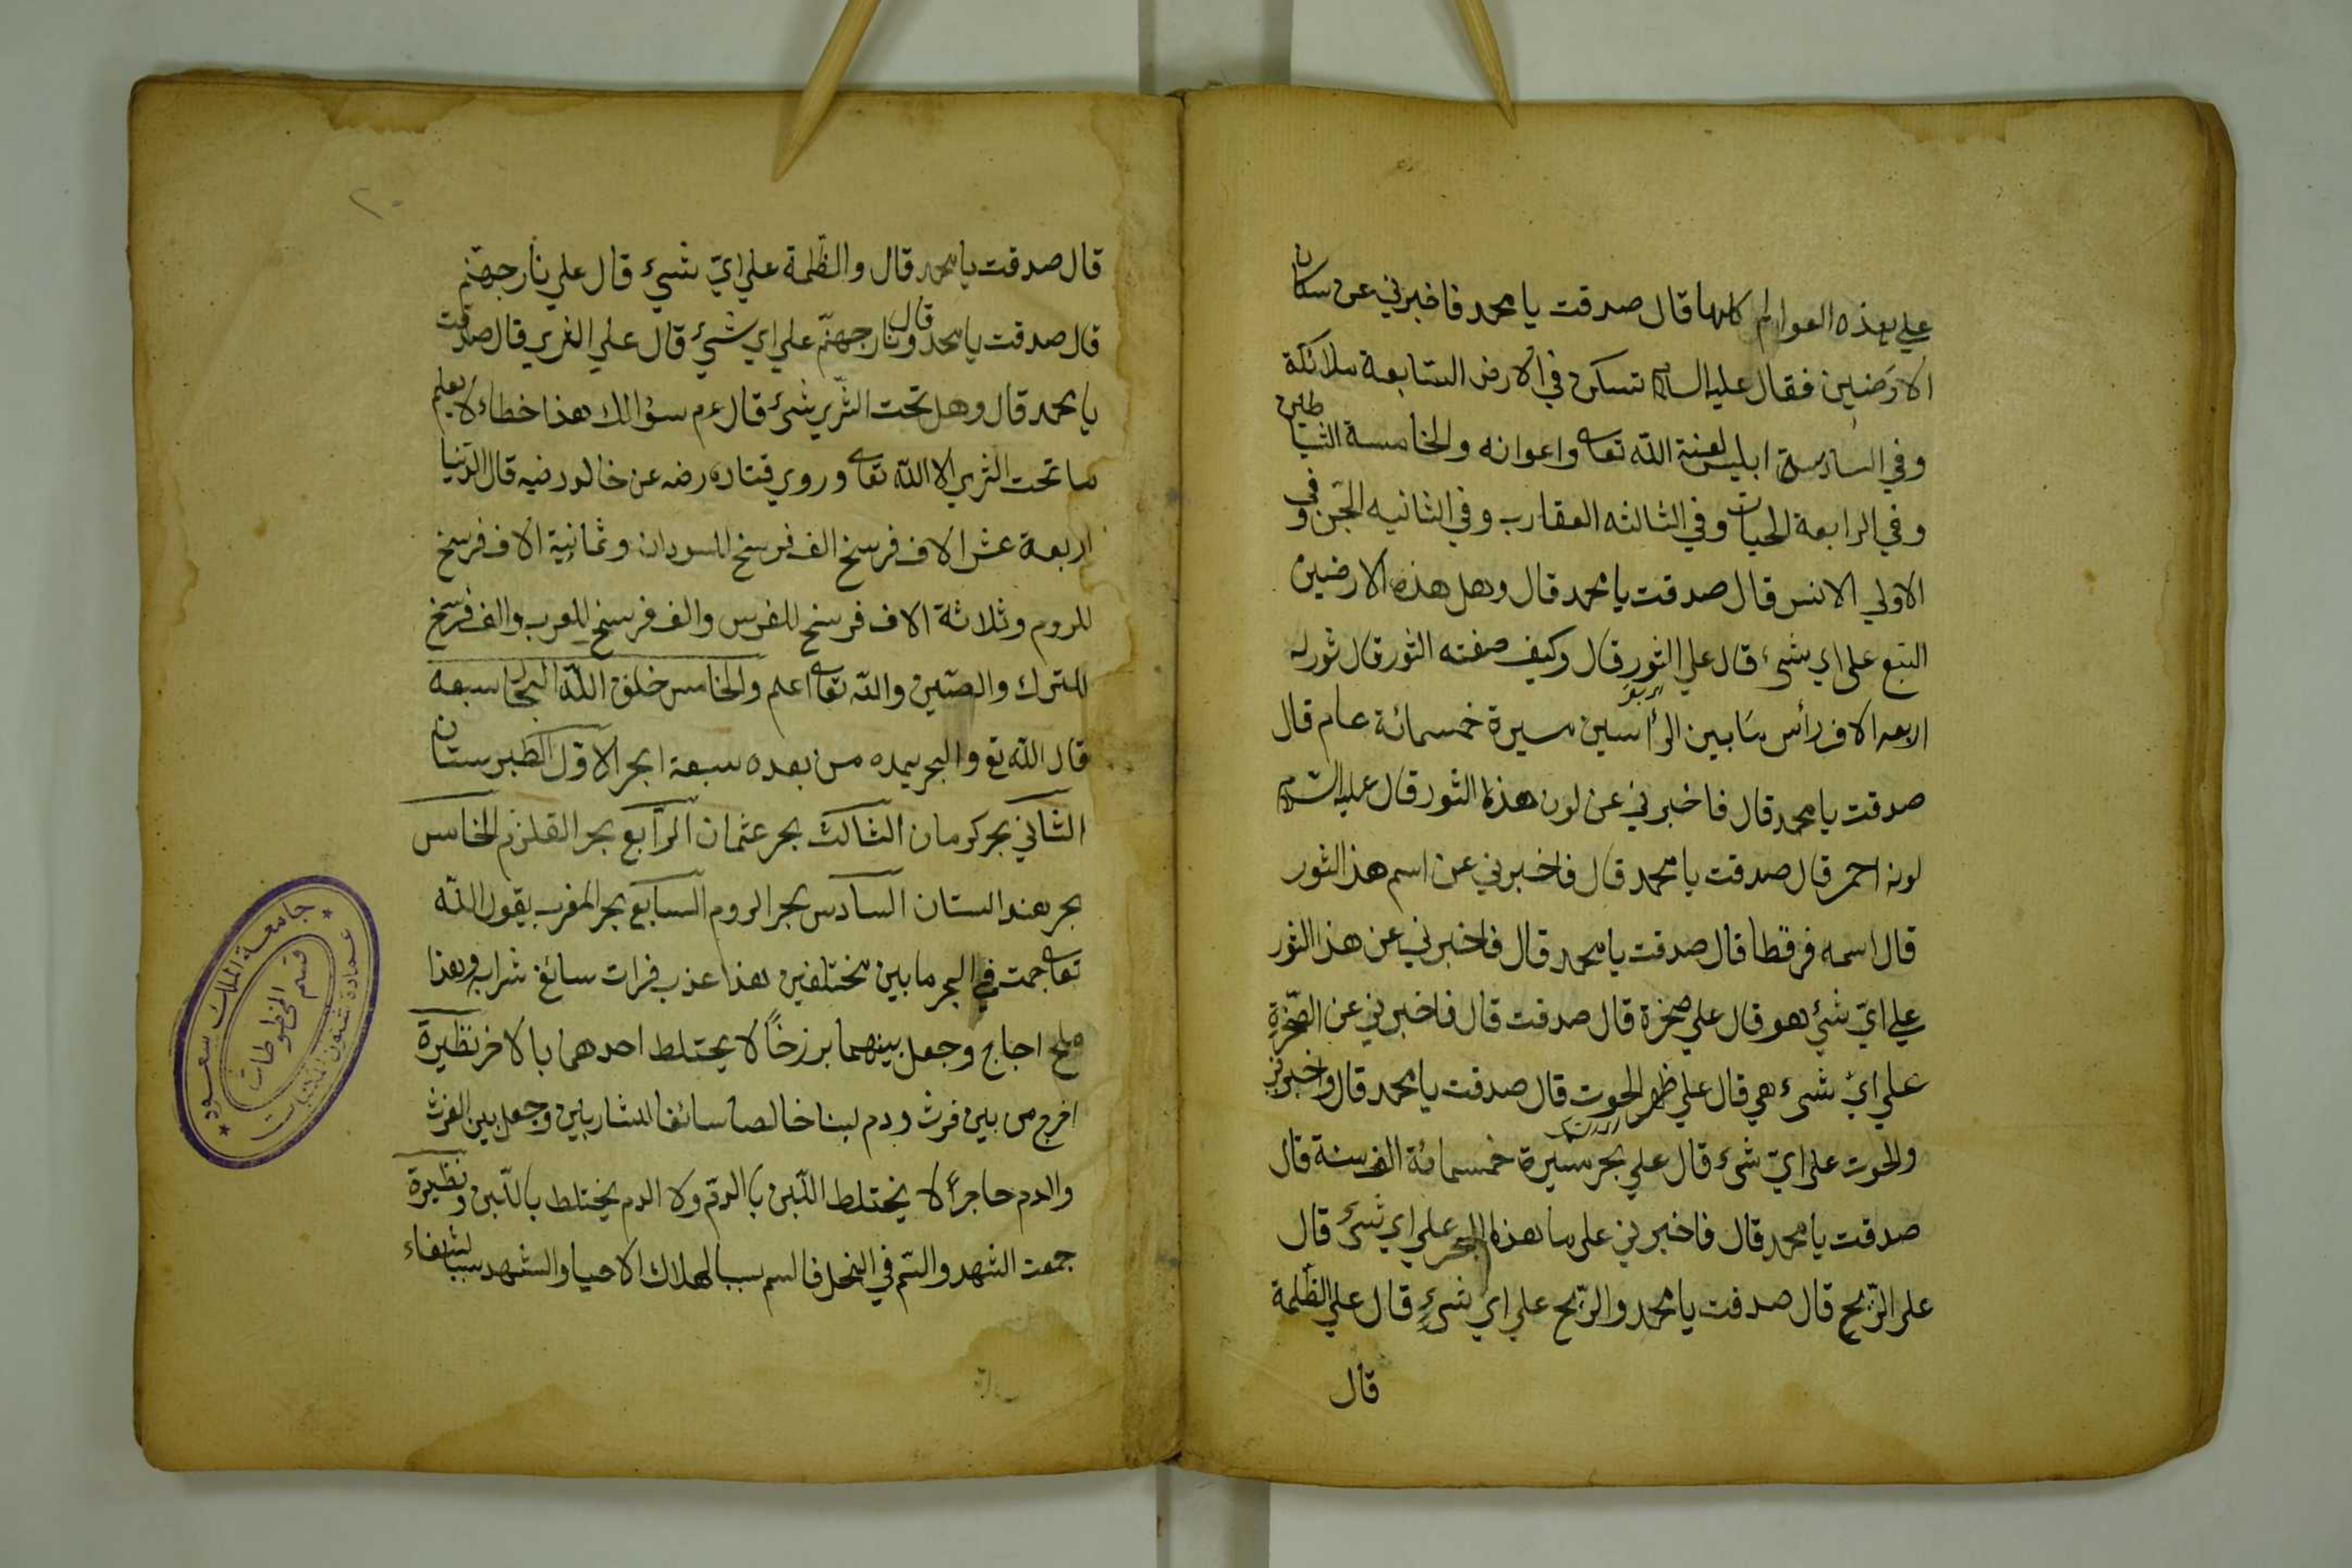 علي هذه العوالم كلها قال صدقت يا محمد فاخبرني عن سكان
الارَضين فقال عليه السلام تسكن في الارض السّابعة ملائكة
وفي السادسة ابليس لعنة الله تعا واعوانه والخامسة الشياطين
وفي الرابعة الحيات وفي الثالثه العقارب وفي الثانيه الجّن وفي
الاولي الانس قال صدقت يا محمد قال وهل هذه الارضين
السّبع علي اي شيء قال علي الثور قال وكيف صفته الثور قال ثور له
اربعه الاف رأس مَا بين الرأسين مسيرة خمسمائة عام قال
صدقت يا محمد قال فاخبرني عن لون هذا الثور قال عليه السّلام
لونه احمر قال صدقت يا محمد قال فاخبرني عن اسم هذ الثور
قال اسمه فرقطا قال صدقت يا محمد قال فاخبرني عن هذا الثور
علي ايّ شئ هو قال علي صخرة قال صدقت قال فاخبرني عن الصّخرة
علي ايّ شيء هي قال علي ظهر الحوت قال صدقت يا محمد قال واخبرني
والحوت علي ايّ شيء قال علي بحر مسيرة خمسمائة الف سنة قال
صدقت يا محمد قال فاخبرني علي ما هذه البحر علي اي شيء قال
علي الرّيح قال صدقت يا محمد والرّيح علي اي شيءٍ قال علي الظّلمة
قال
٢٠
قال صدقت يا محمد قال والظّلمة علي ايّ شيء قال علي نار جهنّم
قال صدقت يا محمد قال ونار جهنّم علي اي شئ قال علي الثري قال صدقت
يا محمد قال وهل تحت الثّري شيء قال عم سؤالك هذا خطاء لا يعلم
ما تحت الثري الا الله تعا وروي قتاده رضه عن خالد رضيه قال الدّنيا
اربعة عشر الاف فرسخ الف فرسخ للسودان وثمانية الاف فرسخ
للروم وثلاثة الاف فرسخ للفرس والف فرسخ للعرب والف فرسخ
للترك والصّين والله تعا اعلم والخامس خلق الله البحار سبعه
قال الله تع والبحر يمده من بعده سبعة ابحر الاوّل الطبرستان
الثاني بحر كرمان الثالث بحر عثمان الرّابع بحر القلزم الخامس
بحر هندالستان السّادس بحر الروم السّابع بحر المغرب يقول الله
تعا جمت في البحر مابين مختلفين هذا عذب فرات سائغ شرابه وهذا
ملح اجاج وجعل بينهما برزخاً لا يختلط احدهما بالاخر نظيرة
اخرج من بين فرث ودم لبنا خالصا سائغا للشاربين وجعل بين الفرث
والدم حاجزاً لا يختلط اللّبن بالدّم ولا الدم يختلط باللّبن ونظيرة
جمعت الشهد والسّم في النحل فالسم سببا لهلاك الاحيا والشهد سببا لشفاء
جامعة الملك سعود
عمادة شئون المكتبات
قسم المخطوطات